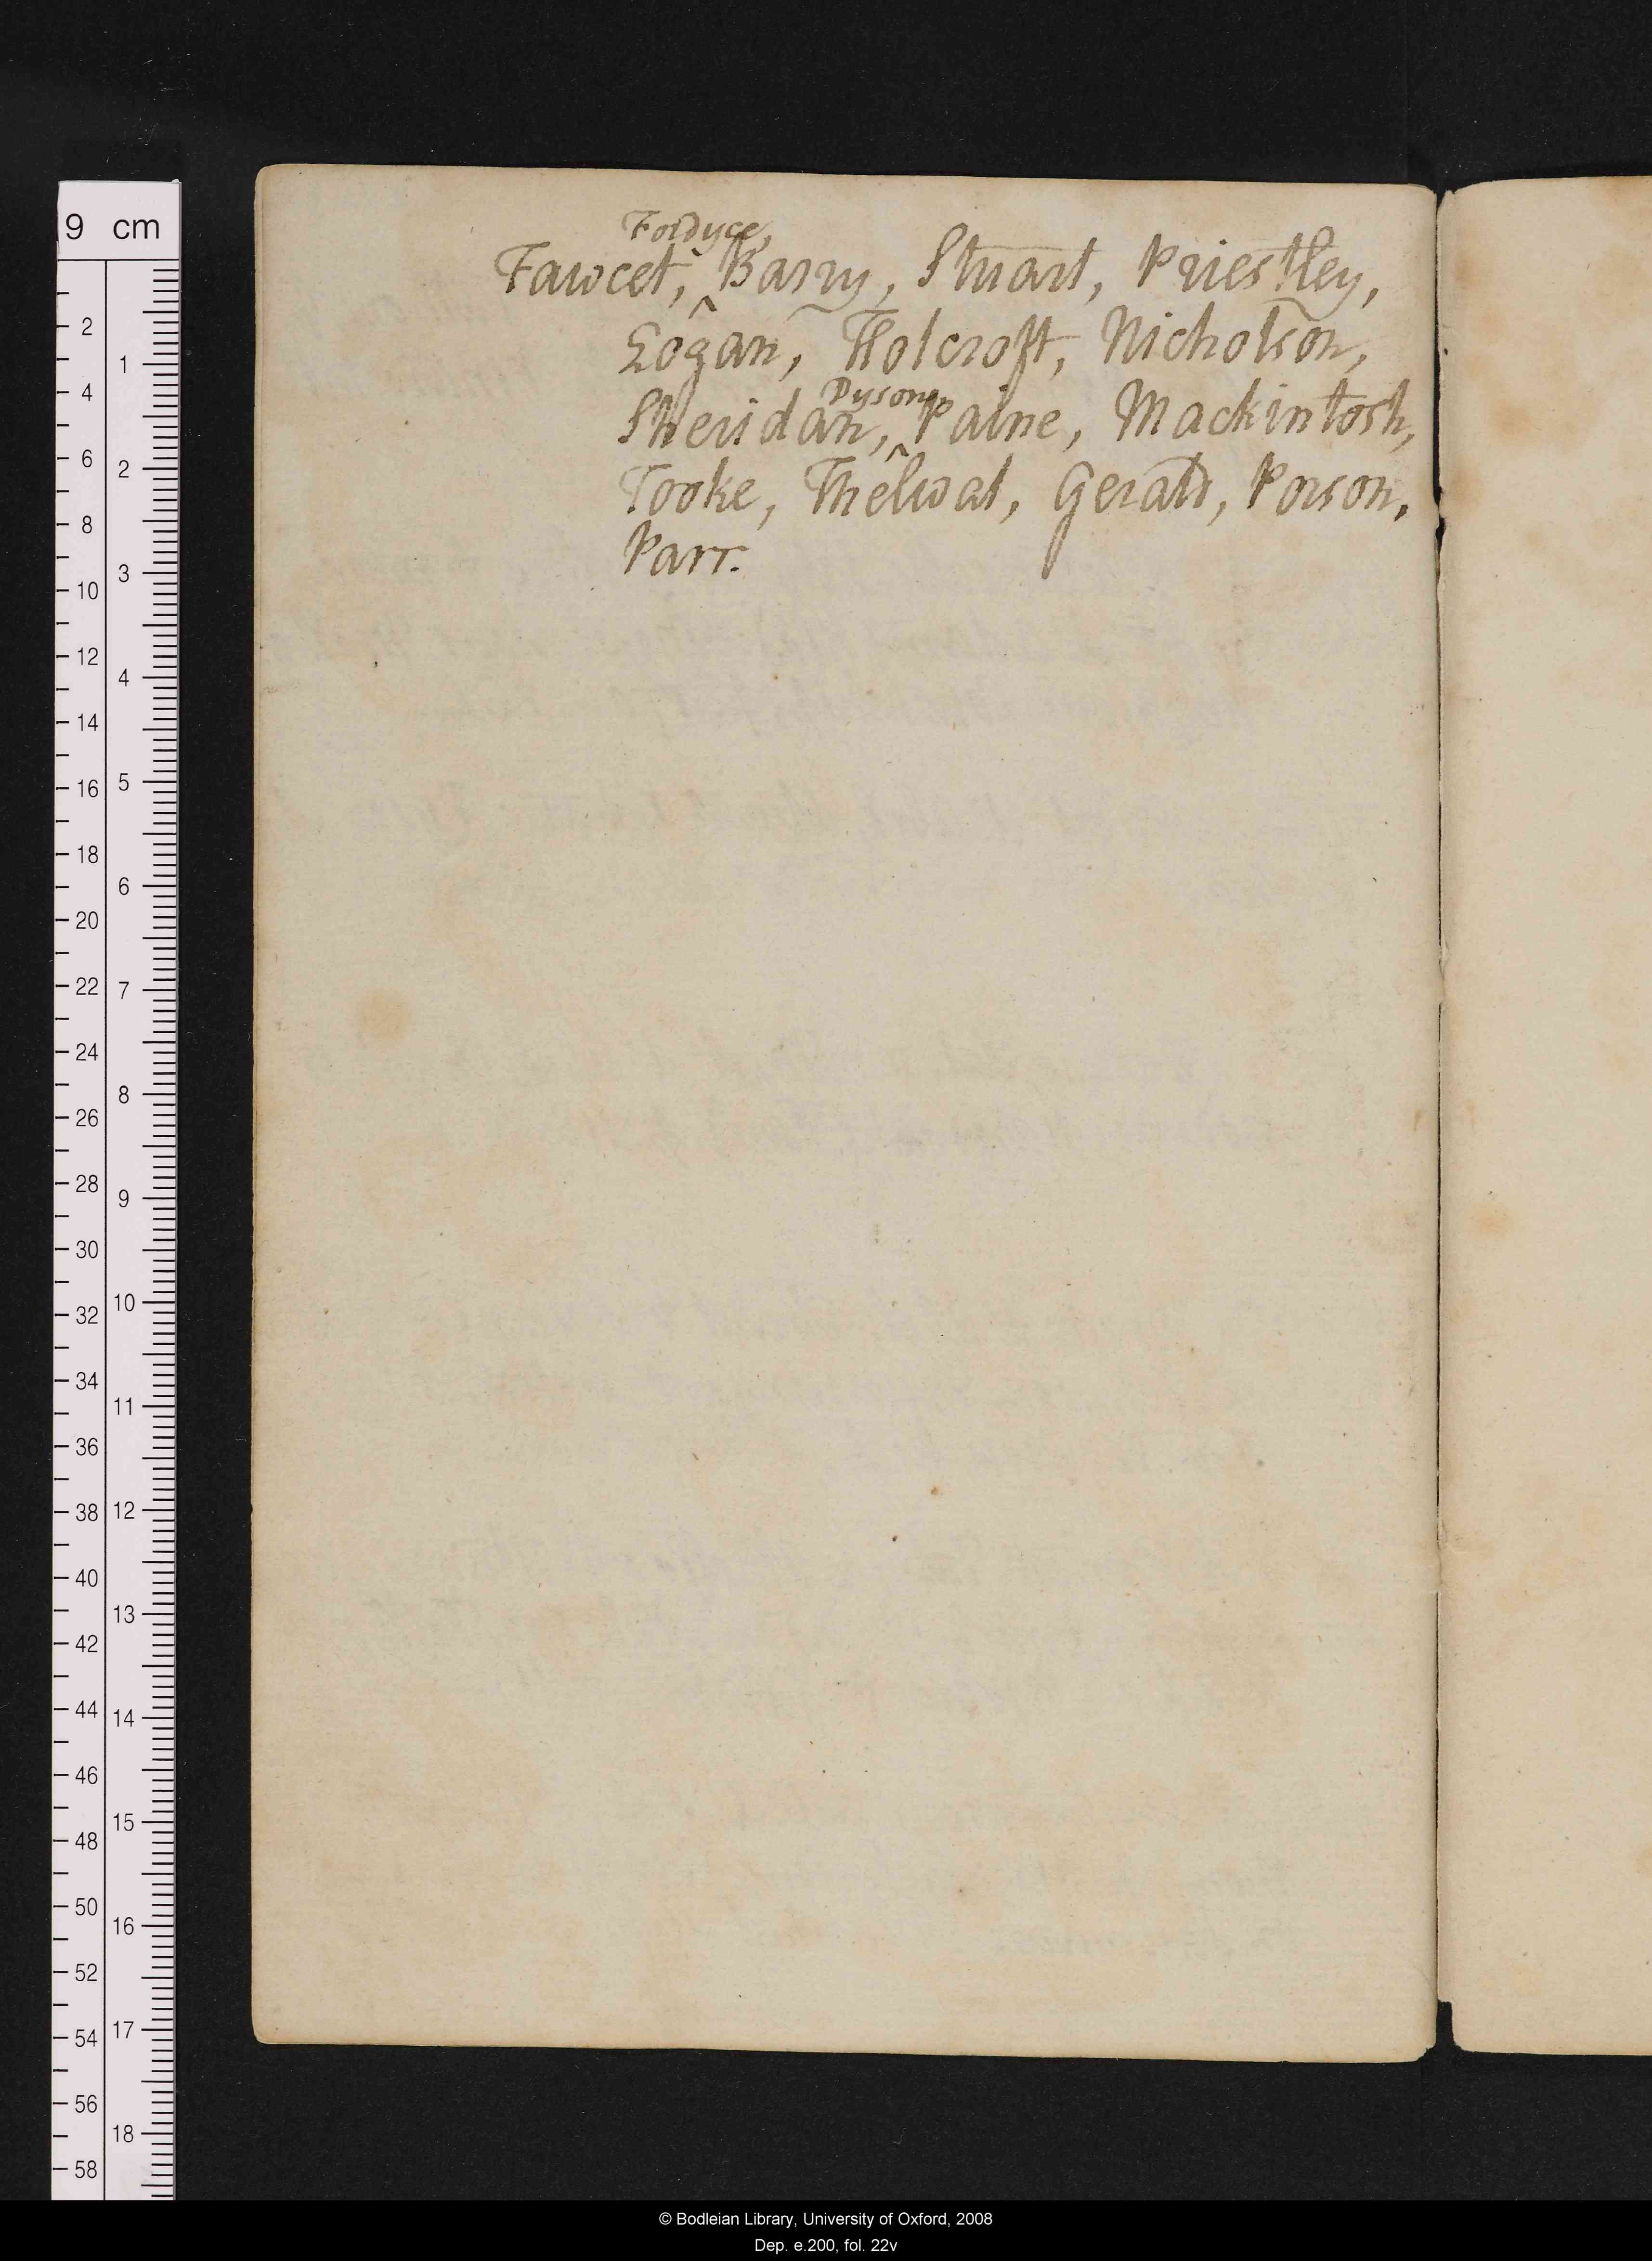 Fordyce,
Fawcet, ^ Barry, Stuart, Priestley,
Logan, Holcroft, Nicholson,
Dyson,
Sheridan, ^ Paine, Mackintosh,
Tooke, Thelwal, Gerald, Porson,
Parr.
9 cm
2
1
4
6
2
8
10
3
12
4
14
16
5
18
6
20
22
7
24
8
26
28
9
30
32
10
34
11
36
38
12
40
13
42
44
14
46
15
48
50
16
52
54
17
56
18
58
© Bodleian Library, University of Oxford, 2008
Dep. e.200, fol. 22v